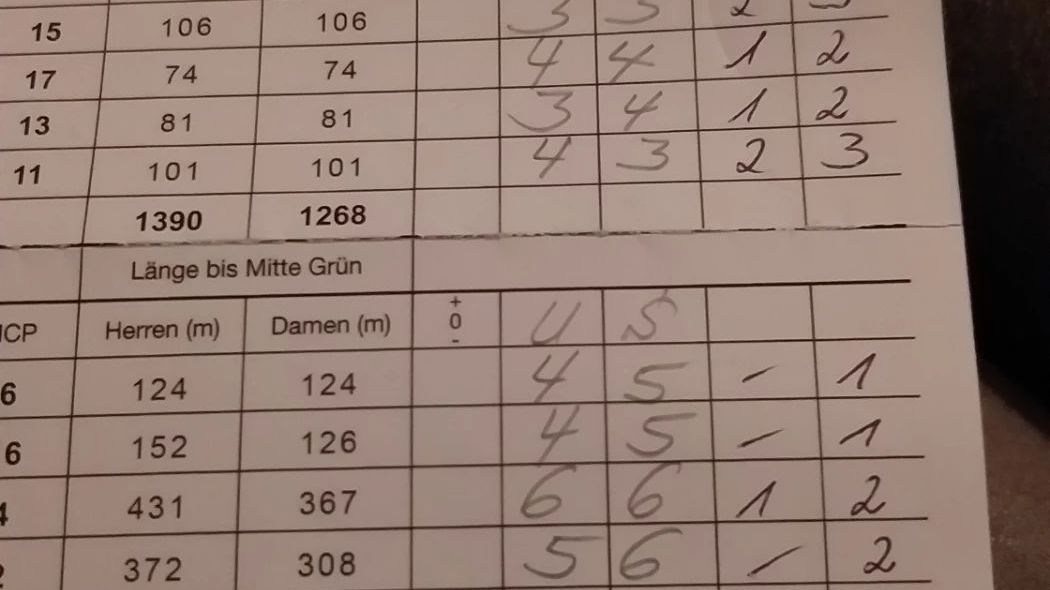 15 106 106 3 3 2
17 74 74 4 4 1 2
13 81 81 3 4 1 2
11 101 101 4 3 2 3
1390 1268
Länge bis Mitte Grün
HCP Herren (m) Damen (m) + 0 - U S
6 124 124 4 5 - 1
6 152 126 4 5 - 1
4 431 367 6 6 1 2
2 372 308 5 6 - 2